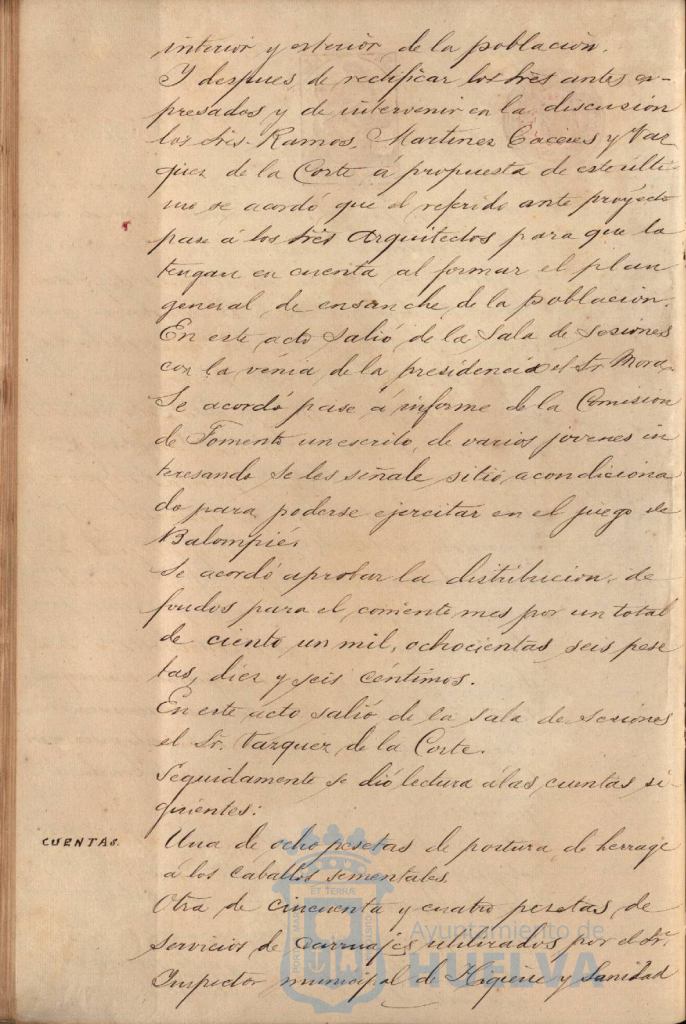 interior y esterior de la población.
Y despues de rectificar los Sres antes es-
presados y de intervenir en la discusión
los Sres. Ramos, Martinez Cáceres y Vaz
quez de la Corte á propuesta de este ulti-
mo se acordó que el referido ante proyecto
pase á los Sres Arquitectos para que la
tengan en cuenta al formar el plan
general de ensanche de la población.
En este acto salió de la Sala de Sesiones
con la vénia de la presidencia el Sr. Mora.
Se acordó pase á informe de la Comision
de Fomento un escrito de varios jovenes in
teresando se les señale sitio acondiciona
do para poderse ejercitar en el juego de
Balompié.
Se acordó aprobar la distribucion de
fondos para el corriente mes por un total
de ciento un mil, ochocientas seis pese
tas, diez y seis céntimos.
En este acto salió de la sala de sesiones
el Sr. Vazquez de la Corte.
Seguidamente se dió lectura á las cuentas si-
guientes:
CUENTAS.
Una de ocho pesetas de postura de herrage
á los caballos sementales.
Otra de cincuenta y cuatro pesetas de
servicios de carruajes utilizados por el Sr.
Inspector municipal de Higiene y Sanidad
Ayuntamiento de
HUELVA